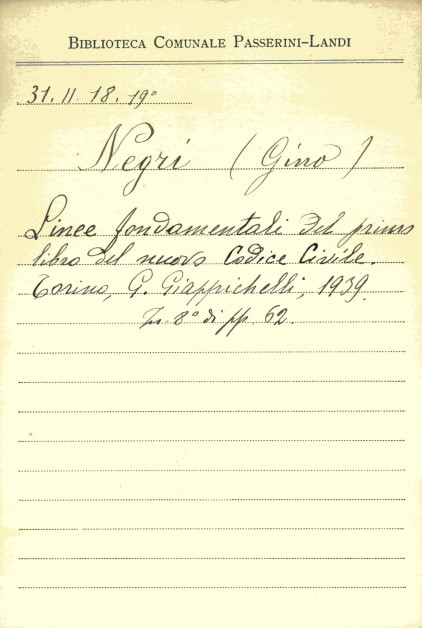 BIBLIOTECA COMUNALE PASSERINI-LANDI
31. II. 18. 19º
Negri (Gino)
Linee fondamentali del primo
libro del nuovo Codice Civile.
Torino, G. Giappichelli, 1939.
In 8º di pp. 62.